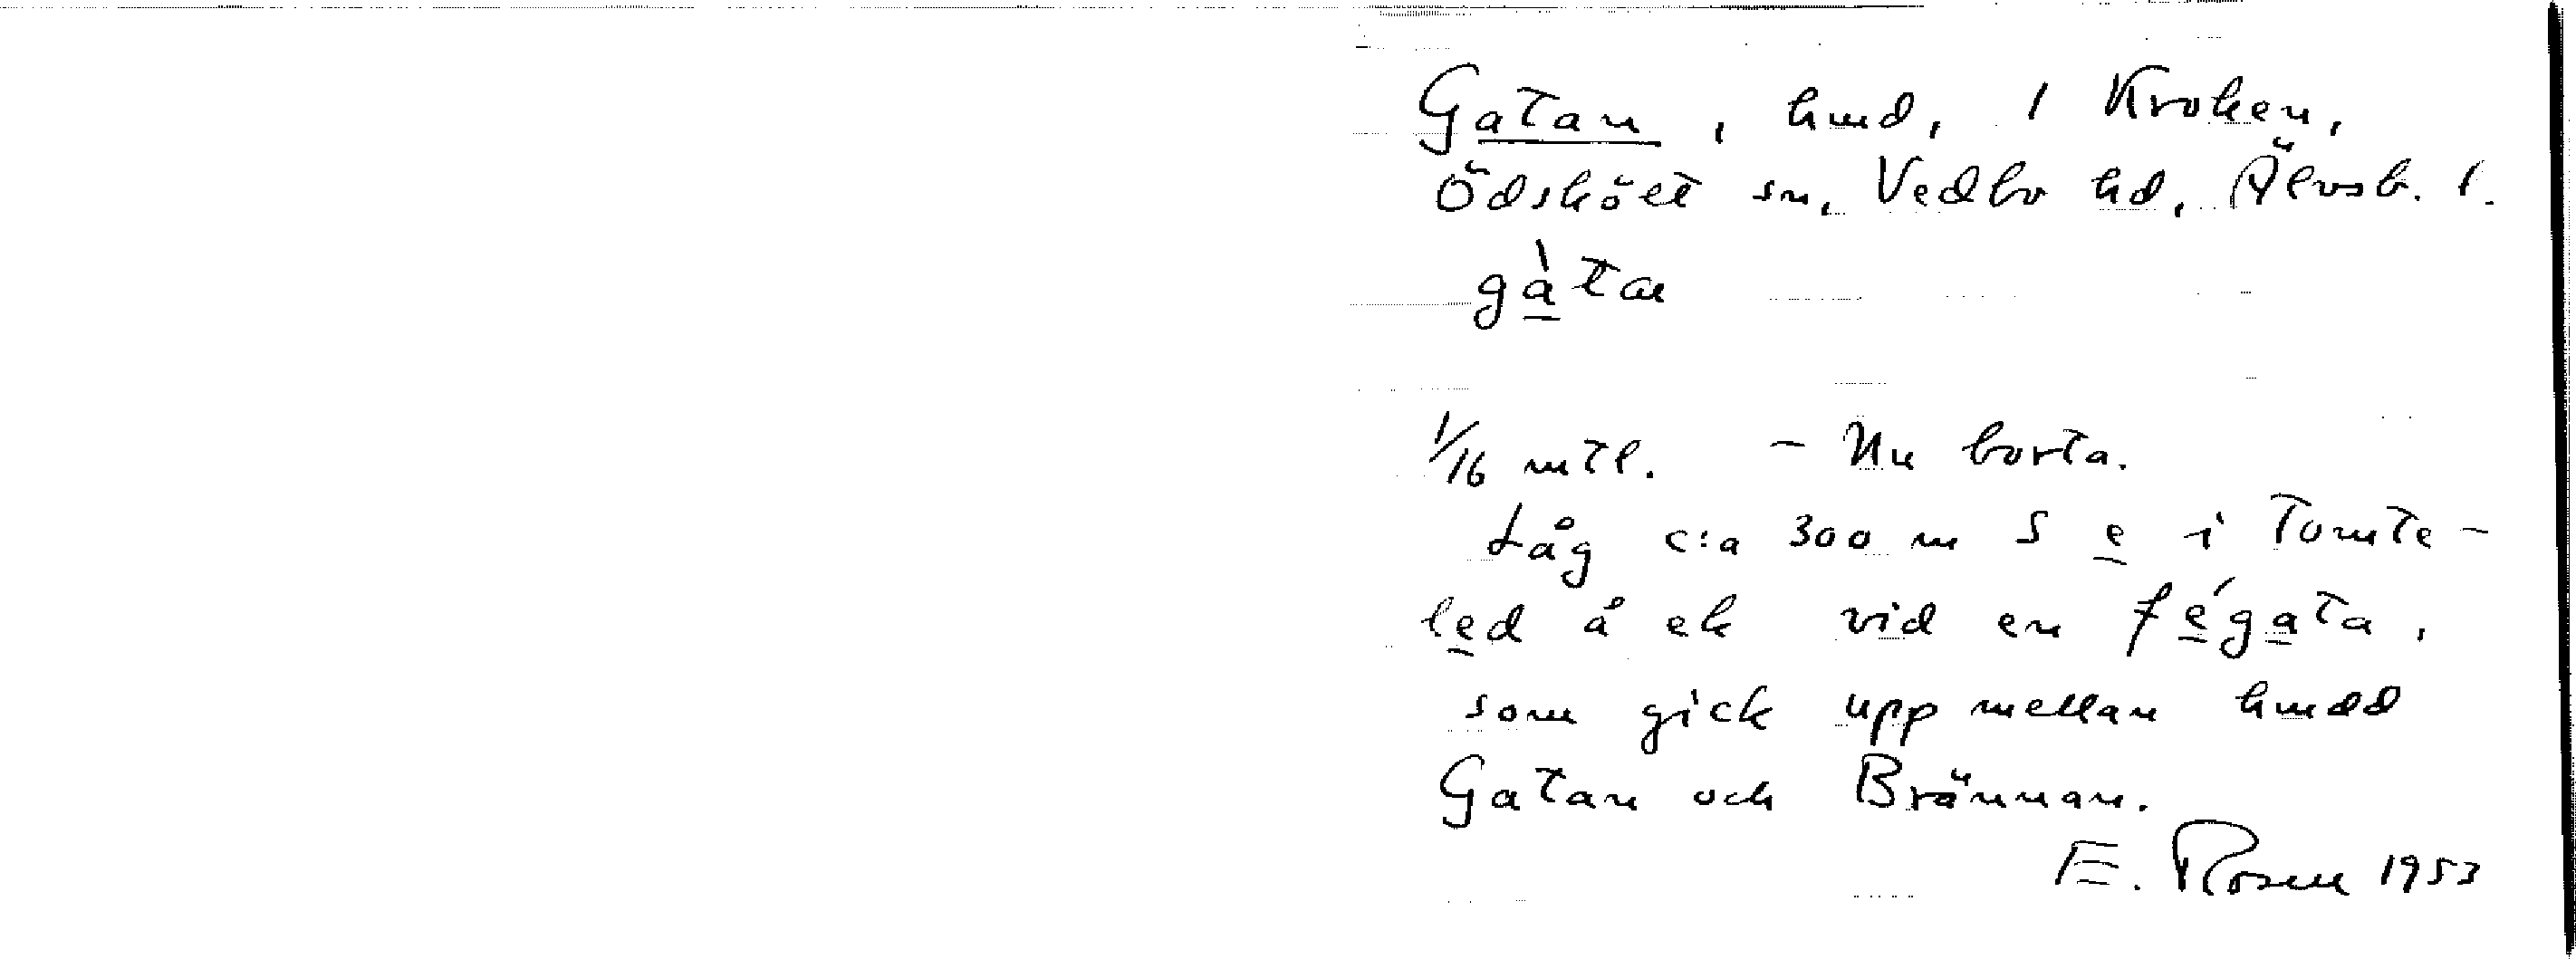 Gatan, hmd, 1 Kroken,
Ödskölt sn, Vedbo hd, Älvsb. l.
gàtan
1/16 mtl. - Nu borta.
Låg c:a 300 m S e i Tomte-
led å ek vid en fégata,
som gick upp mellan hmdd
Gatan och Brännan.
E. Rosen 1953